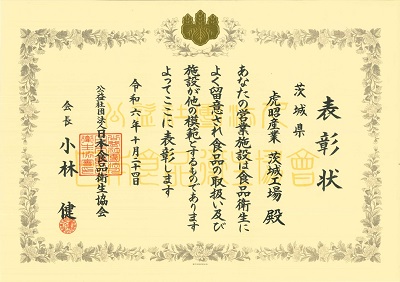 表彰状
茨城県
虎昭産業 茨城工場 殿
あなたの営業施設は食品衛生に
よく留意され食品の取扱い及び
施設が他の模範とするものであります
よってここに表彰します
令和六年十月二十四日
公益社団法人日本食品衛生協会
会長 小林 健